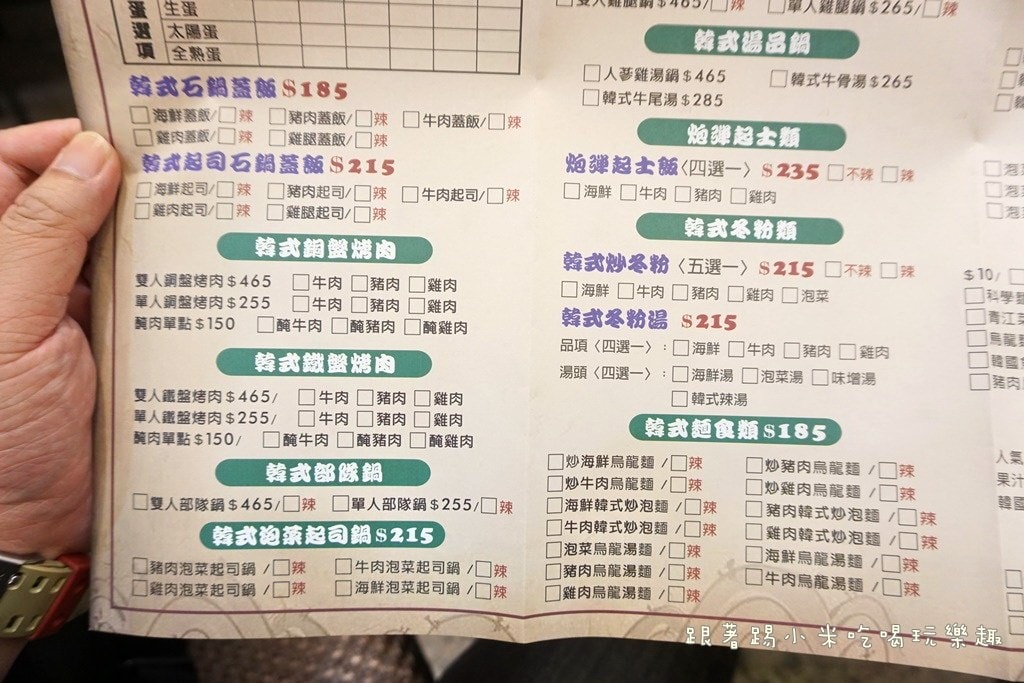 蛋選項
生蛋
太陽蛋
全熟蛋
韓式石鍋蓋飯$185
海鮮蓋飯/□辣 豬肉蓋飯/□辣 牛肉蓋飯/□辣
雞肉蓋飯/□辣 雞腿蓋飯/□辣
韓式起司石鍋蓋飯$215
海鮮起司/□辣 豬肉起司/□辣 牛肉起司/□辣
雞肉起司/□辣 雞腿起司/□辣
韓式銅盤烤肉
雙人銅盤烤肉$465 □牛肉 □豬肉 □雞肉
單人銅盤烤肉$255 □牛肉 □豬肉 □雞肉
醃肉單點$150 □醃牛肉 □醃豬肉 □醃雞肉
韓式鐵盤烤肉
雙人鐵盤烤肉$465/ □牛肉 □豬肉 □雞肉
單人鐵盤烤肉$255/ □牛肉 □豬肉 □雞肉
醃肉單點$150/ □醃牛肉 □醃豬肉 □醃雞肉
韓式部隊鍋
□雙人部隊鍋$465/□辣 □單人部隊鍋$255/□辣
韓式泡菜起司鍋$215
□豬肉泡菜起司鍋/□辣 □牛肉泡菜起司鍋/□辣
□雞肉泡菜起司鍋/□辣 □海鮮泡菜起司鍋/□辣
□雙人雞腿鍋$465/□辣 □單人雞腿鍋$265/□辣
韓式湯品鍋
□人蔘雞湯鍋$465 □韓式牛骨湯$265
□韓式牛尾湯$285
炮彈起士類
炮彈起士飯〈四選一〉$235 □不辣 □辣
□海鮮 □牛肉 □豬肉 □雞肉
韓式冬粉類
韓式炒冬粉〈五選一〉$215 □不辣 □辣
□海鮮 □牛肉 □豬肉 □雞肉 □泡菜
韓式冬粉湯 $215
品項〈四選一〉:□海鮮 □牛肉 □豬肉 □雞肉
湯頭〈四選一〉:□海鮮湯 □泡菜湯 □味增湯
□韓式辣湯
韓式麵食類$185
□炒海鮮烏龍麵/□辣 □炒豬肉烏龍麵/□辣
□炒牛肉烏龍麵/□辣 □炒雞肉烏龍麵/□辣
□海鮮韓式炒泡麵/□辣 □豬肉韓式炒泡麵/□辣
□牛肉韓式炒泡麵/□辣 □雞肉韓式炒泡麵/□辣
□泡菜烏龍湯麵/□辣 □海鮮烏龍湯麵/□辣
□豬肉烏龍湯麵/□辣 □牛肉烏龍湯麵/□辣
□雞肉烏龍湯麵/□辣
$10/
科學麵
青江菜
烏龍麵
韓國
豬肉
人氣
果汁
韓國
跟著踢小米吃喝玩樂趣